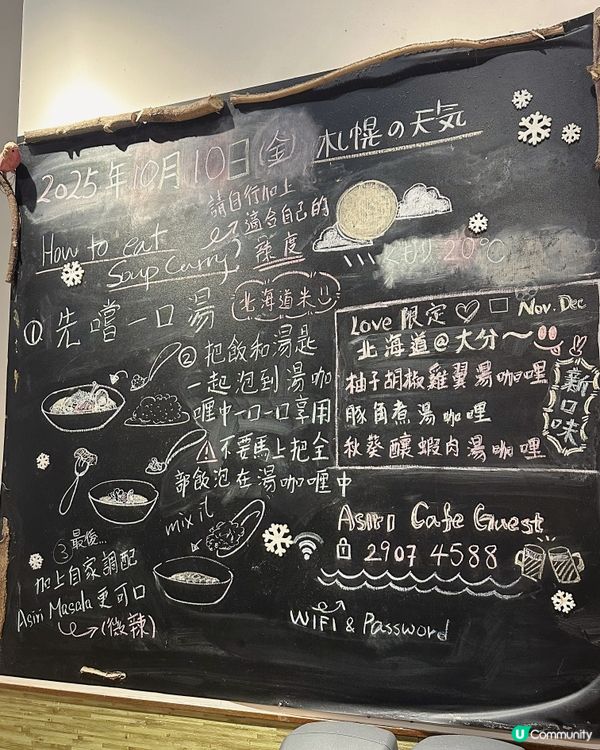 2025年10月10日(金) 札幌の天気
請自行加上
適合自己的
辣度
くもり 20℃
How to eat
Soup Curry?
北海道米
① 先嚐一口湯
② 把飯和湯匙
一起泡到湯咖
喱中一口一口享用
⚠不要馬上把全
部飯泡在湯咖喱中
mix it
③ 最後...
加上自家調配
Asiri Masala更可口
(微辣)
Love 限定 ♡ □ Nov. Dec
北海道@大分～
柚子胡椒雞翼湯咖哩
豚角煮湯咖哩
秋葵釀蝦肉湯咖哩
新口味
Asiri Cafe Guest
2907 4588
WiFi & Password
U Community